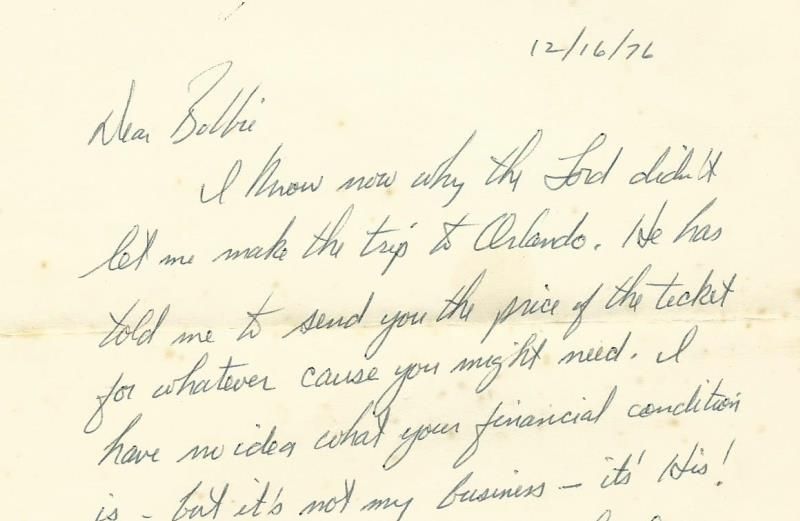 12/16/76
Dear Bobbie
I know now why the Lord didn't
let me make the trip to Orlando. He has
told me to send you the price of the ticket
for whatever cause you might need. I
have no idea what your financial condition
is - but it's not my business - it's His!